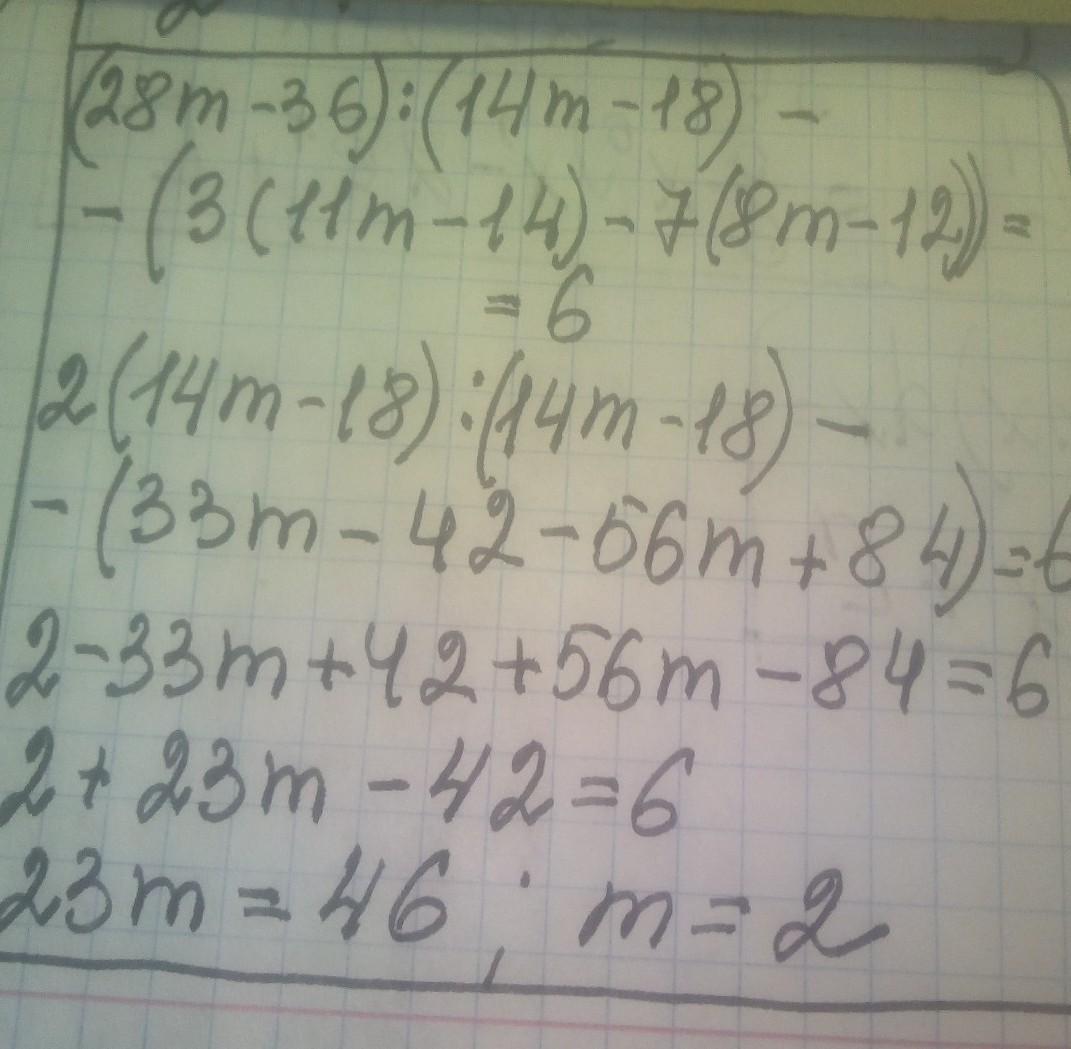 (28m-36):(14m-18) -
- (3(11m-14)-7(8m-12)) =
= 6
2(14m-18):(14m-18) -
- (33m-42-56m+84)=6
2-33m+42+56m-84=6
2+23m-42=6
23m=46; m=2